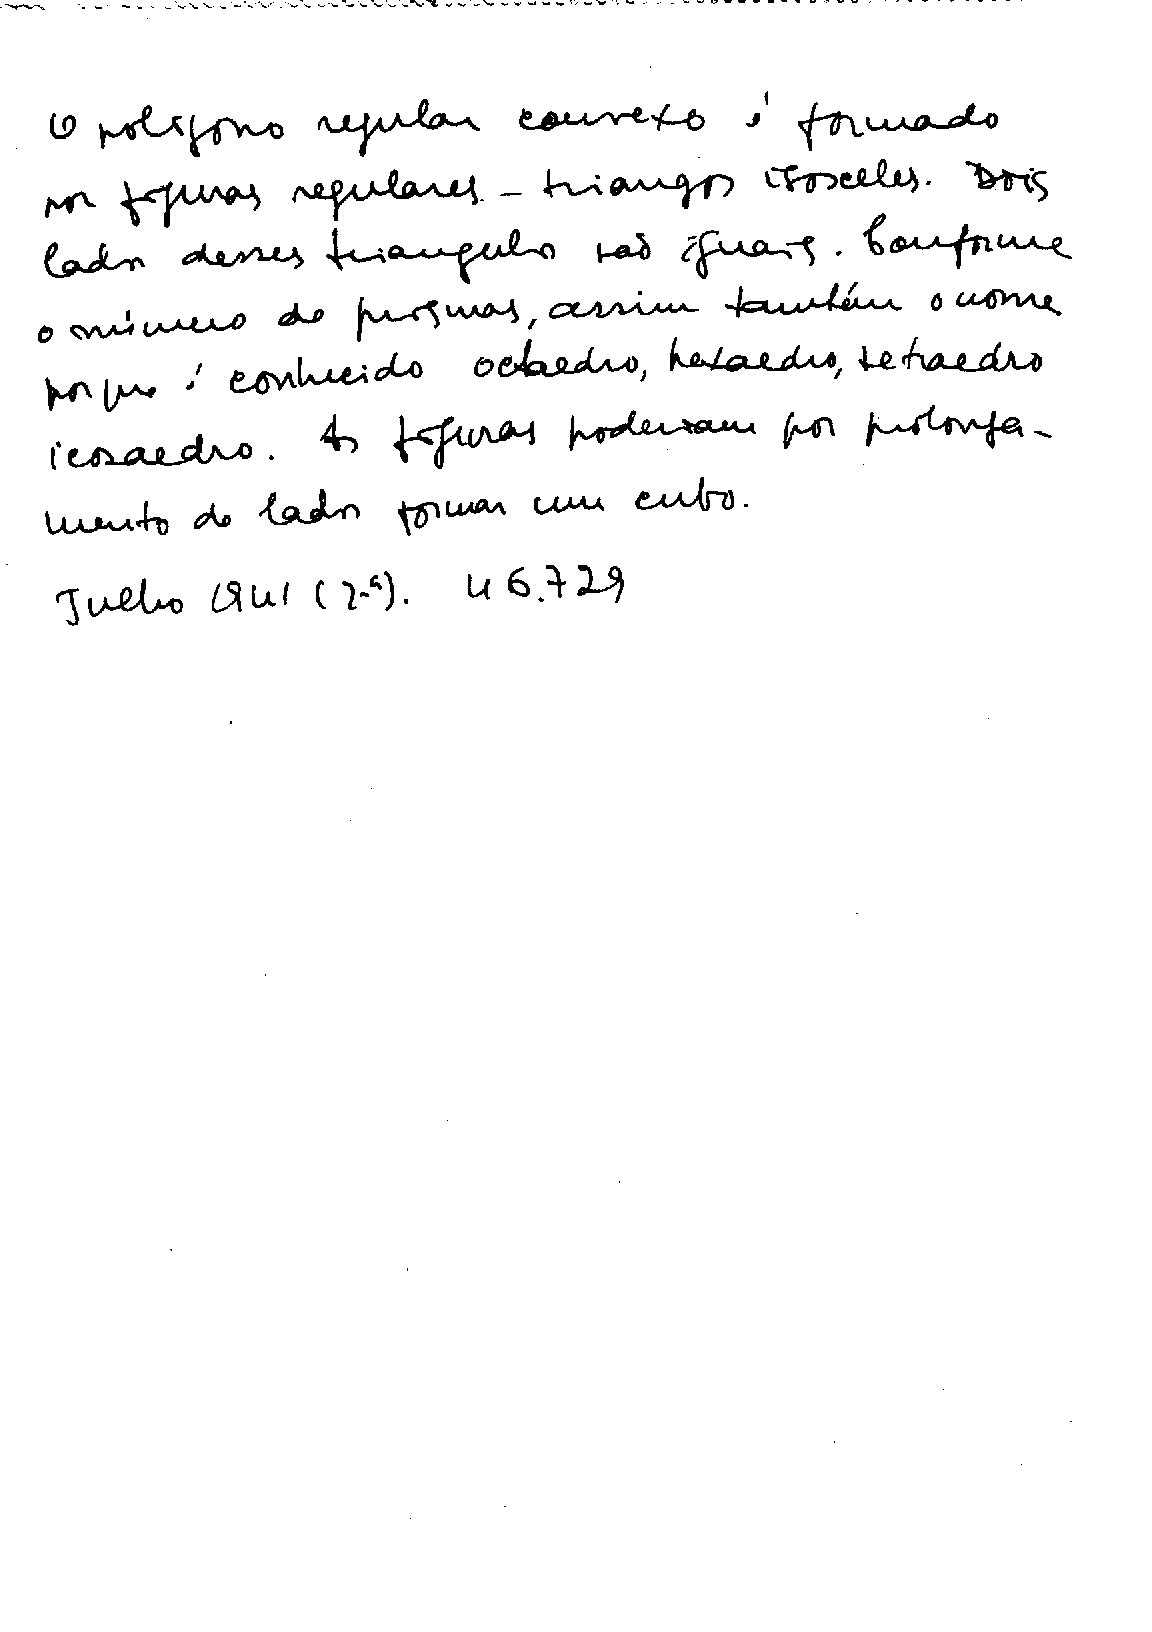 O polígono regular convexo é formado
por figuras regulares - triangos isosceles. Dois
lados desses triangulos são iguais. Conforme
o número de prismas, assim também o nome
por que é conhecido octaedro, hexaedro, tetraedro
icosaedro. As figuras poderiam por prolonga-
mento de lados formar um cubo.
Julho 1941 (2ª). 46.729